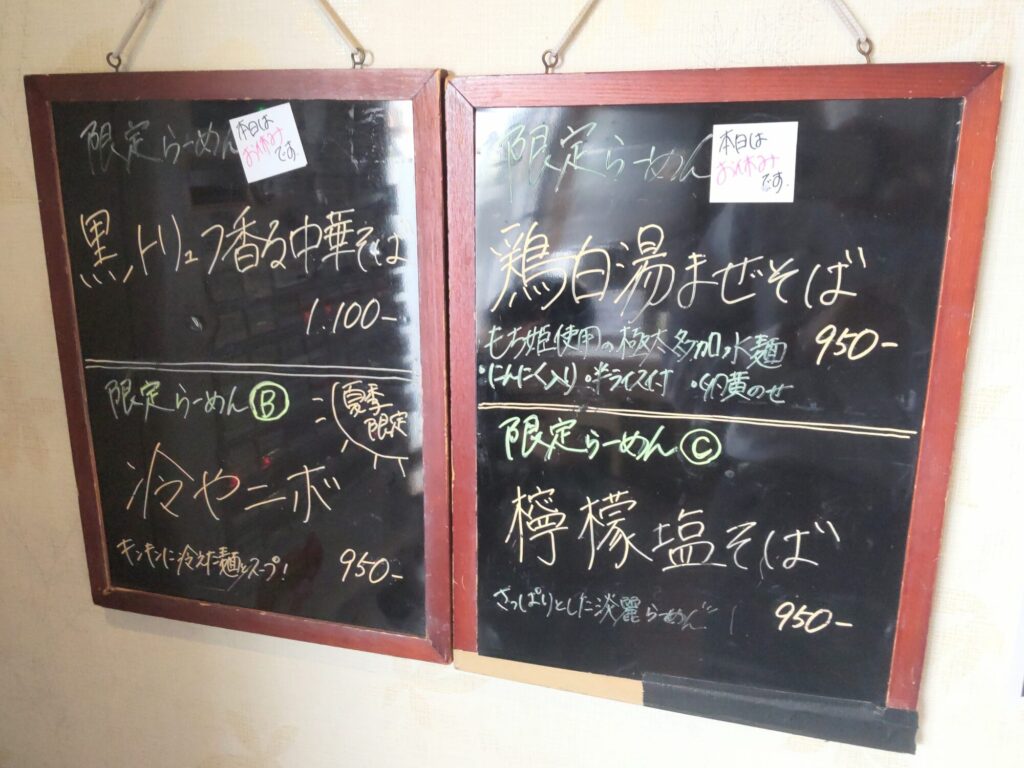 限定らーめん
本日は
お休み
です。
黒トリュフ香る中華そば
1.100-
限定らーめん Ⓑ
夏季
限定
冷やニボ
キンキンに冷えた麺とスープ!
950-
限定らーめん
本日は
お休み
です.
鶏白湯まぜそば
950-
もち姫使用の極太多加水麺
・にんにく入り ・半ライス付 ・卵黄のせ
限定らーめん Ⓒ
檸檬塩そば
さっぱりとした淡麗らーめん
950-